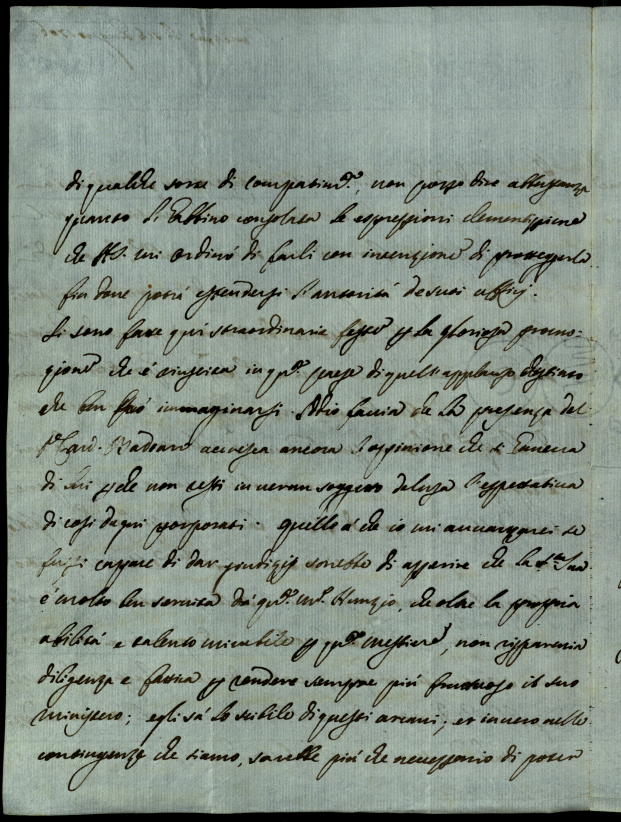 di qualche sorte di compatim.to, non posso dire abbastanza
quanto l'abbino consolata le espressioni clementissime
che V.S. mi ordinò di farli con intenzione di proteggerla
fin dove potrà estendersi l'autorità de suoi uffizj.
Si sono fatte quì straordinarie feste p la gloriosa promo-
zione che è riuscita in q.to paese di quell'applauso
che ben può immaginarsi. Dio faccia che la presenza del
S.r Card. Badoaro accresca ancora l'oppinione che si teneva
di lui p che non resti in verun soggetto delusa l'espettativa
di così degni porporati. Quello à che io mi avvanzarei se
fussi capace di dar giudizio sarebbe di asserire che la S.tà Sua
è molto ben servita da q.to M.r Nunzio, che oltre la propria
abilità e talento mirabile p q.to mestiere, non risparmia
diligenza e fatica p rendere sempre più fruttuoso il suo
ministero; egli sà lo scibile di questi arcani; et in vero nelle
contingenze che siamo, sarebbe più che necessario di poter